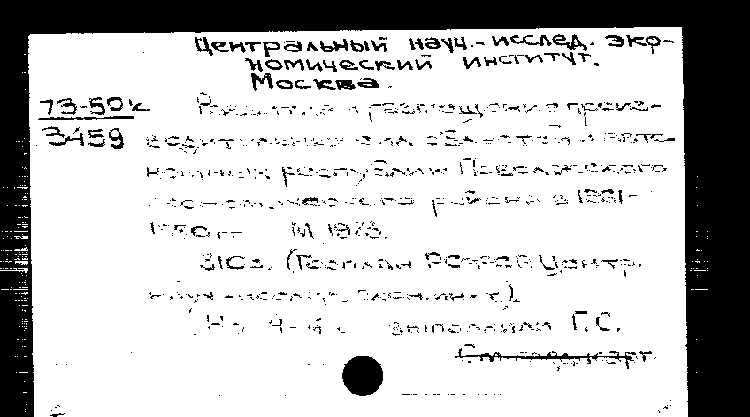 Центральный науч.-исслед. эко-
номический институт.
Москва.
73-50к Развитие и размещение произ-
3459 водительных сил областей и авто-
номных республик Поволжского
экономического района в 1981-
1990 гг. М. 1973.
310с. (Госплан РСФСР Центр.
науч.-исслед. экон. ин-т).
На 4-й с. выполнили Г.С.
См. след. карт.